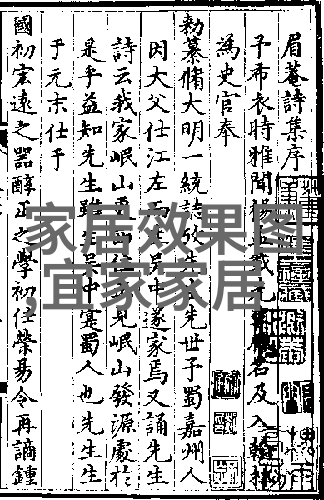 眉菴詩集序
予布衣時雅聞楊孟載先生名及入翰林
為史官奉
勑纂脩大明一統誌攷先生先世子蜀嘉州人
因大父仕江左而生吳中遂家焉又誦先生
詩云我家岷山更西住見岷山發源處於
是乎益知先生雖生吳中寔蜀人也先生生
于元末仕于
國初宏遠之器醇正之學初任滎昜令再謫鍾
家居效果图
,宜家家居